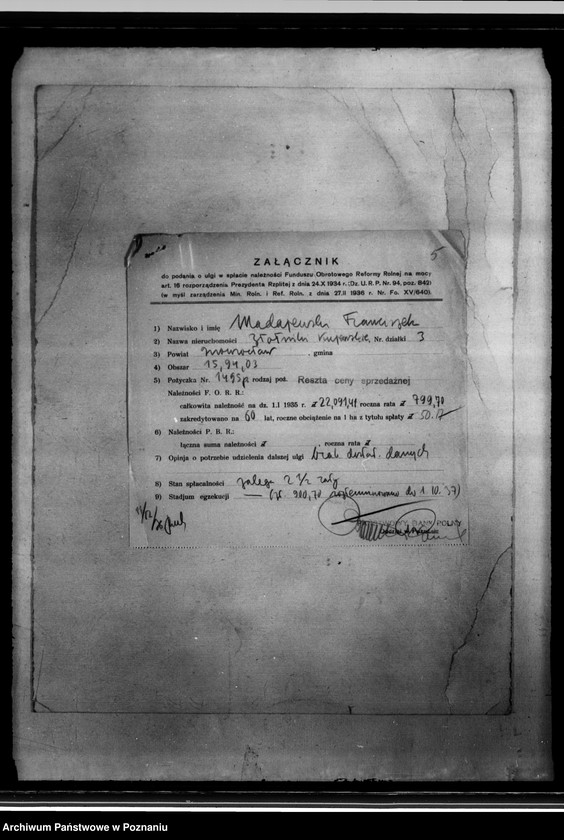 5
ZAŁĄCZNIK
do podania o ulgi w spłacie należności Funduszu Obrotowego Reformy Rolnej na mocy
art. 16 rozporządzenia Prezydenta Rzplitej z dnia 24.X 1934 r. (Dz. U. R. P. Nr. 94, poz. 842)
(w myśl zarządzenia Min. Roln. i Ref. Roln. z dnia 27.II 1936 r. Nr. Fo. XV/640).
1) Nazwisko i imię Madajewski Franciszek
2) Nazwa nieruchomości Złotniki Kujawskie, Nr. działki 3
3) Powiat Inowrocław, gmina
4) Obszar 15,94,03
5) Pożyczka Nr. 1495p rodzaj poż. Reszta ceny sprzedażnej
Należności F. O. R. R.:
całkowita należność na dz. 1.I 1935 r. zł 22,091,41 roczna rata zł 799,70
zakredytowano na 60 lat, roczne obciążenie na 1 ha z tytułu spłaty zł 50.17
6) Należności P. B. R.:
łączna suma należności zł roczna rata zł
7) Opinja o potrzebie udzielenia dalszej ulgi brak dosłat. danych
8) Stan spłacalności zalega 2 1/2 raty
9) Stadjum egzekucji — (zł. 900,70 do 1.IV.37)